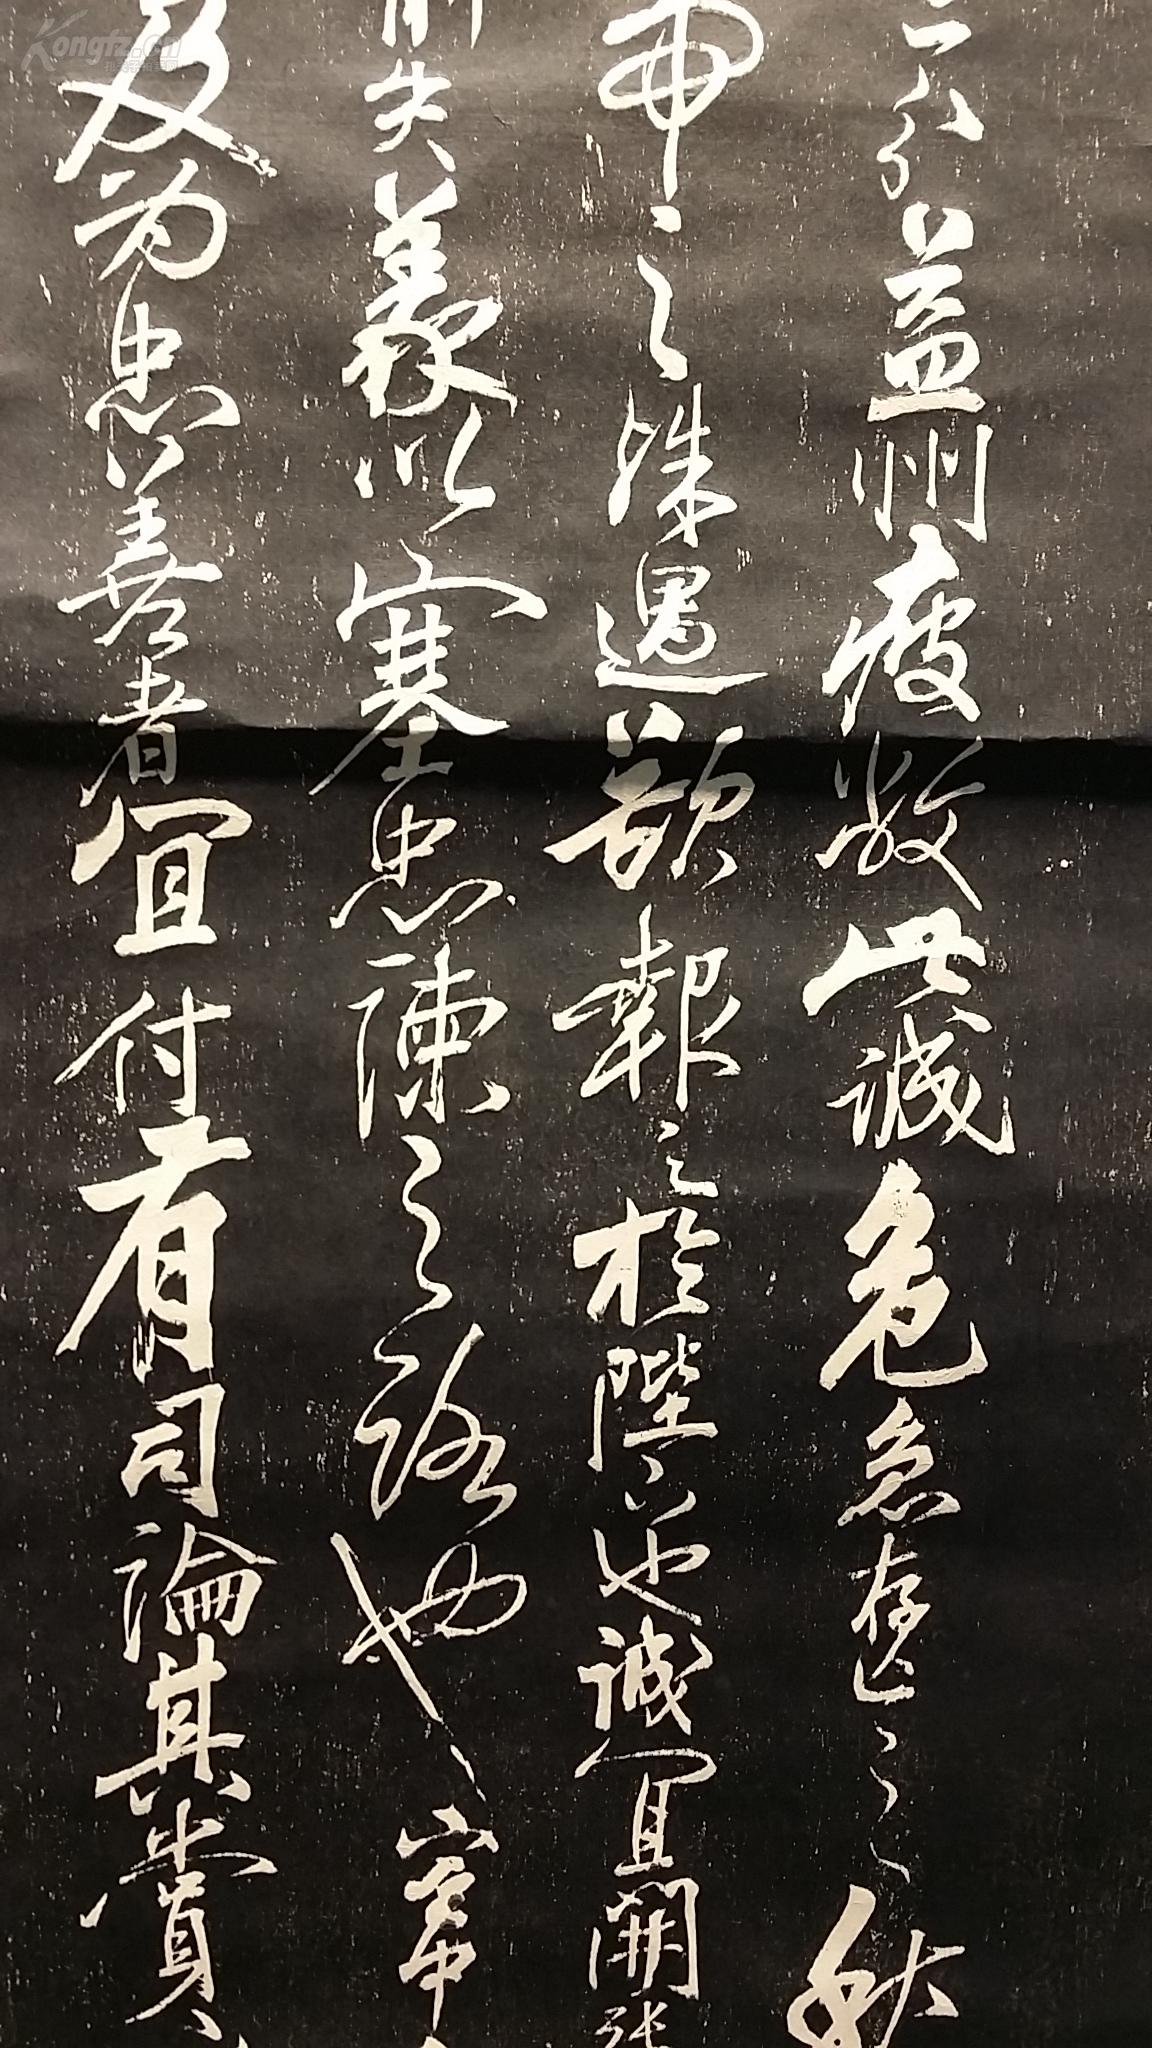 三分益州疲敝此誠危急存亡之秋
帝之殊遇欲報之於陛下也誠宜開張
喻失義以塞忠諫之路也宮中
及為忠善者宜付有司論其賞
Kongfz.cn